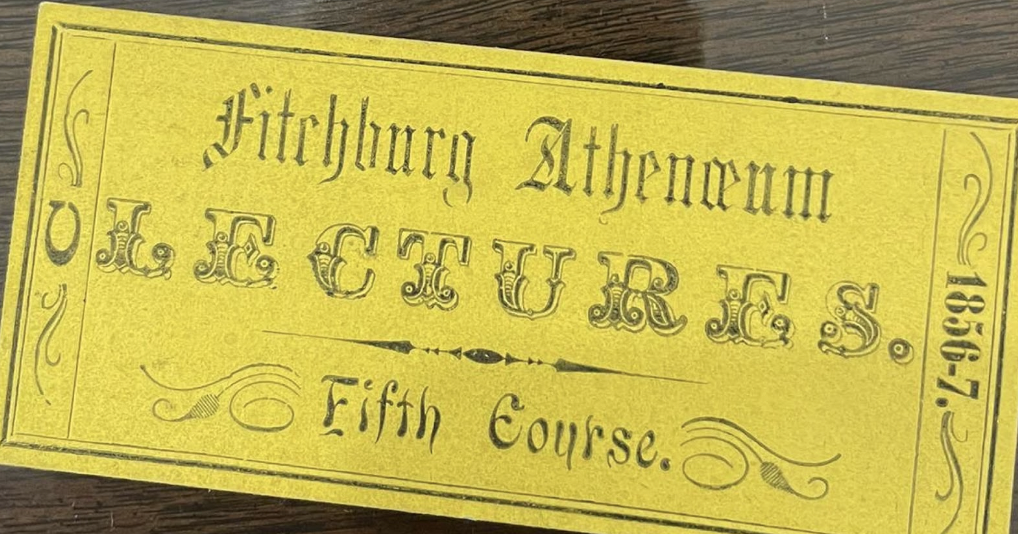 Fitchburg Athenœum
LECTURES.
Fifth Course.
C
1856-7.